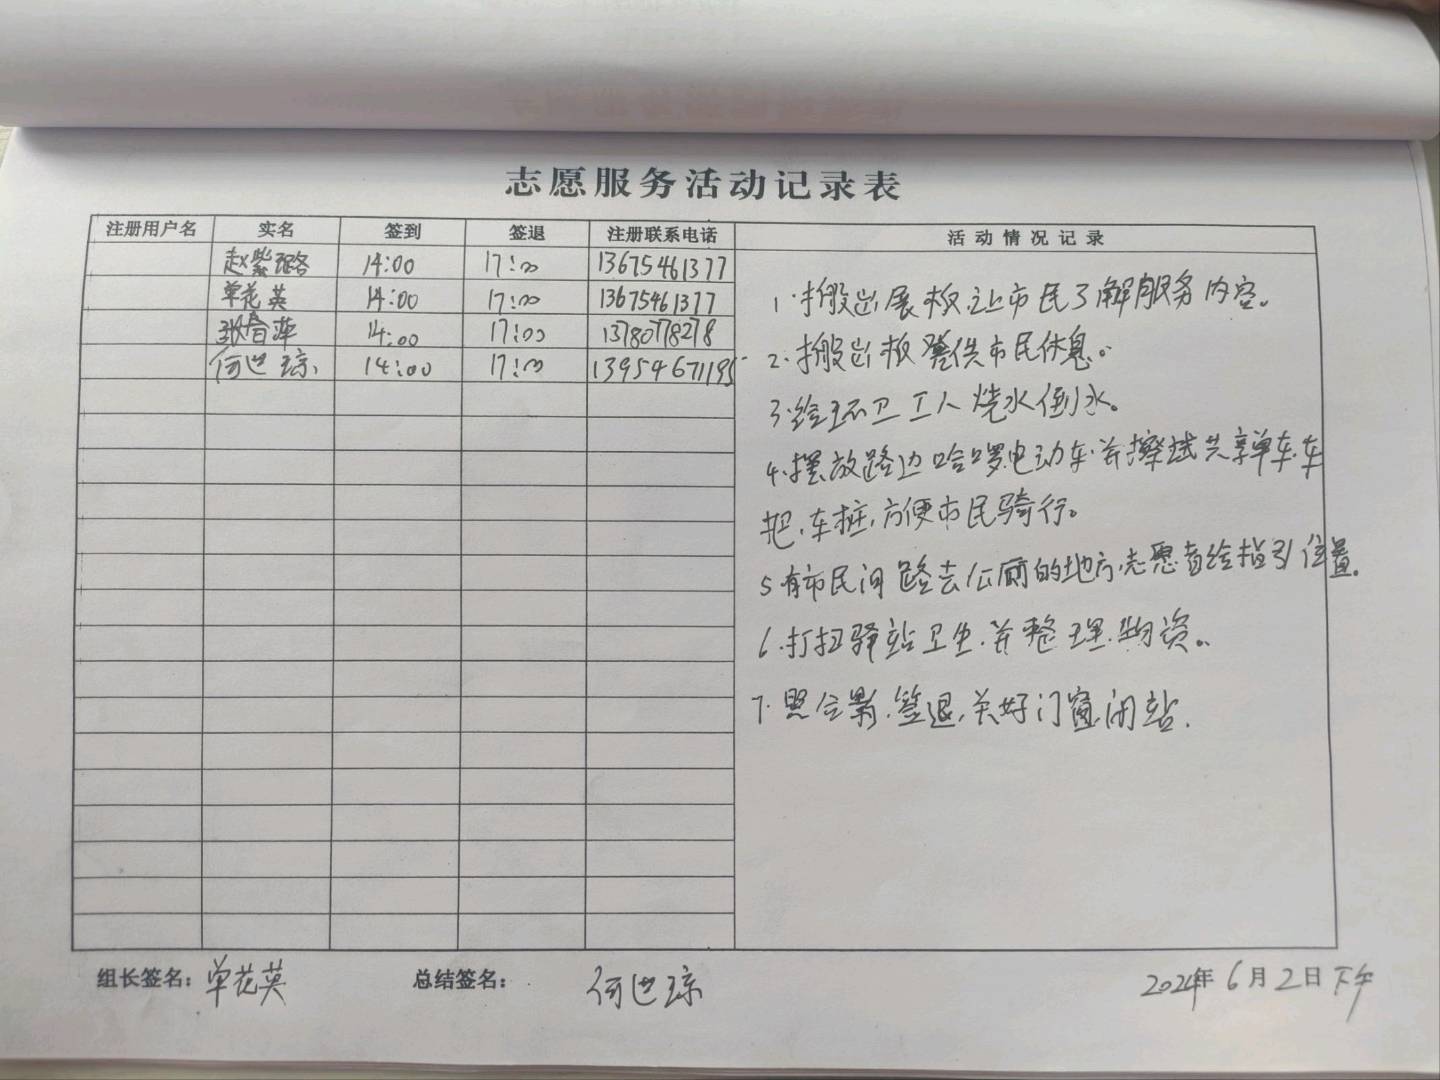 志愿服务活动记录表
注册用户名 实名 签到 签退 注册联系电话 活动情况记录
赵紫璐 14:00 17:00 13675461377
单花英 14:00 17:00 13675461377
张春萍 14:00 17:00 13780778278
何世琼 14:00 17:00 13954671195
1.搬出展板,让市民了解服务内容。
2.搬出板凳供市民休息。
3.给环卫工人烧水倒水。
4.摆放路边哈啰电动车.并擦拭共享单车.车
把.车桩,方便市民骑行。
5.有市民问路去公厕的地方,志愿者给指引位置。
6.打扫驿站卫生.并整理.物资。
7.照合影.签退,关好门窗,闭站.
组长签名:单花英 总结签名:何世琼 2024年6月2日下午